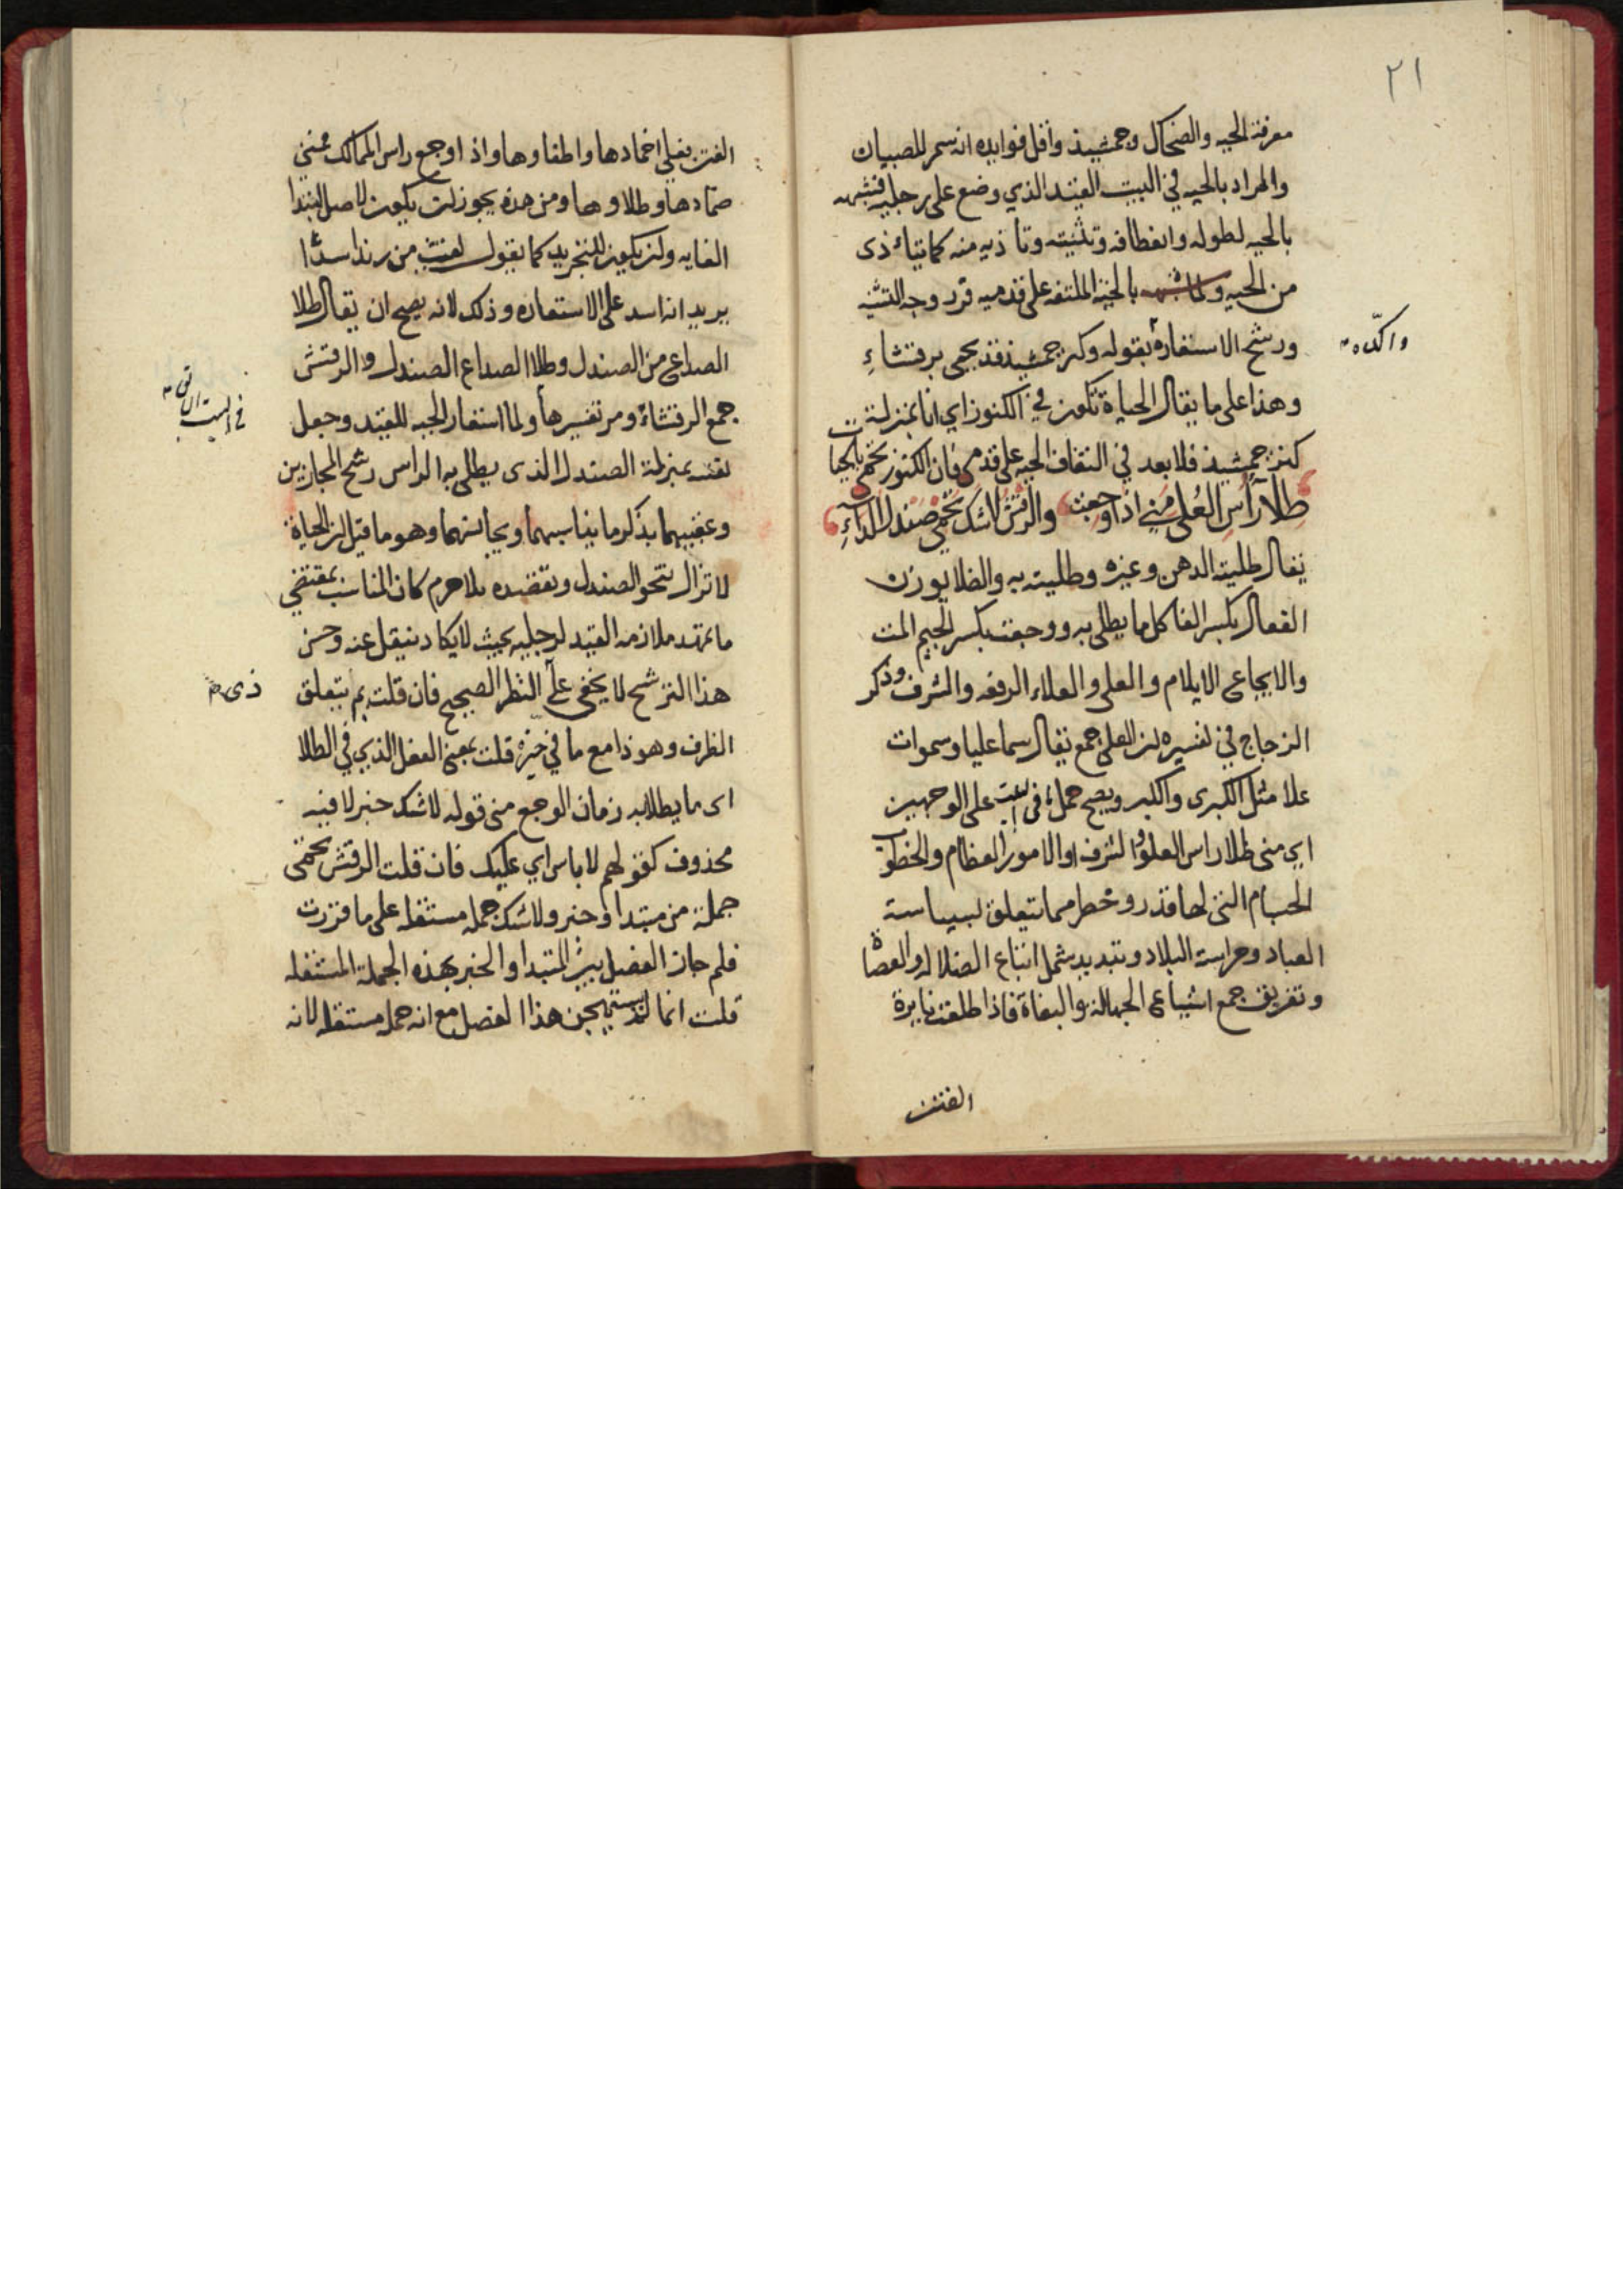 ٢١
معرفة الحيه والضحاك وجمشيد واقل فوايده انه سمر للصبيان
والمراد بالحيه في البيت القيد الذي وضع على رجليه فشبهه
بالحيه لطوله وانعطافه وتثنيته وتاذيه منه كما يتاذى
من الحيه ولما شبهه بالحية الملتفه على قدميه قرر وجه التشبيه
واكّده
ورشح الاستعارة بقوله وكنز جمشيد قد يحمى برقشاءِ
وهذا على ما يقال الحياة تكون في الكنوز اي انا بمنزلة
كنز جمشيد فلا بعد في التفاف الحيه على قدمى فان الكنوز تحمى بالحيات
طِلا رأس العُلى مني اذا وجعت والرقش لا شك تحمى صندل الداءِ
يقال طليته الدهن وغيره وطليته به والطلا بوزن
الفعال بكسر الفا كل ما يطلى به ووجعت بكسر الجيم المت
والايجاع الايلام والعلى والعلاء الرفعه والشرف وذكر
الزجاج في تفسيره ان العلى جمع يقال سما عليا وسموات
علا مثل الكبرى والكبر ويصح حمل ما في البيت على الوجهين
اي منى طلا راس العلو والشرف او الامور العظام والخطوب
الجسام التي لها قدر وخطر مما يتعلق بسياسة
العباد وحراسة البلاد وتبديد شمل اتباع الضلاله والعصاة
وتفريق جمع اشياع الجهالة والبغاة فاذا طلعت نايرة
الفتن
الفتن فعلي اخمادها واطفاوها واذا وجع راس الممالك فمني
ضمادها وطلاوها ومن هذه يجوز ان يكون لاصل ابتدا
الغايه وان يكون للتجريد كما يقول لقيت من زيد اسدًا
يريد انه اسد على الاستعاره وذلك لانه يصح ان يقال طلا
الصداع من الصندل وطلا الصداع الصندل والرقش
جمع الرقشاء ومر تفسيرها ولما استعار الحيه للقيد وجعل
نفسه بمنزلة الصندل الذي يطلى به الراس رشح المجازين
وعقبهما بذكر ما يناسبهما ويجانسهما وهو ما قيل ان الحياة
لا تزال تنحو الصندل وتقصده فلا جرم كان المناسب بمقتضى
ما تمهد ملازمه القيد لرجليه بحيث لا يكاد ينتقل عنه وحسن
هذا الترشح لا يخفى على النظر الصحيح فان قلت بم يتعلق
ذى
الظرف وهو اذا مع ما في حيزه قلت بمعنى الفعل الذي في الطلا
اى ما يطلا به زمان الوجع منى قوله لا شك خبر لا فيه
محذوف كقولهم لا باس اي عليك فان قلت الرقش تحمى
جملة من مبتدا وخبر ولا شك جمله مستقله على ما قررت
فلم جاز الفصل بين المبتدا والخبر بهذه الجملة المستقله
قلت انما لم يستهجن هذا الفصل مع انه جمله مستقله لانه